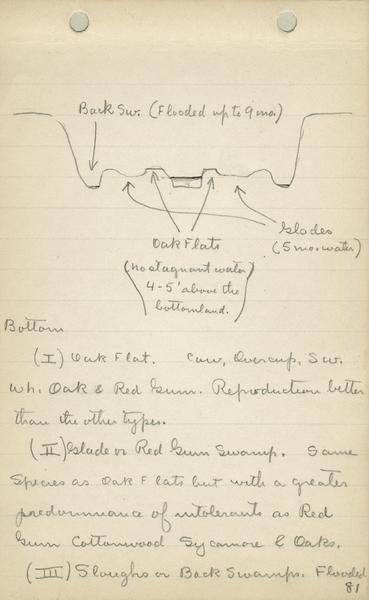 Back Sw. (Flooded up to 9 mo.)
Glades
(5 mos water)
Oak Flats
(no stagnant water
4-5' above the
bottomland.)
Bottom
(I) Oak Flat. Cow, Overcup, Sw.
Wh. Oak & Red Gum. Reproduction better
than the other types.
(II) Glade or Red Gum Swamp. Same
Species as Oak Flats but with a greater
predominance of intolerants as Red
Gum Cottonwood Sycamore & Oaks.
(III) Sloughs or Back Swamps. Flooded
81